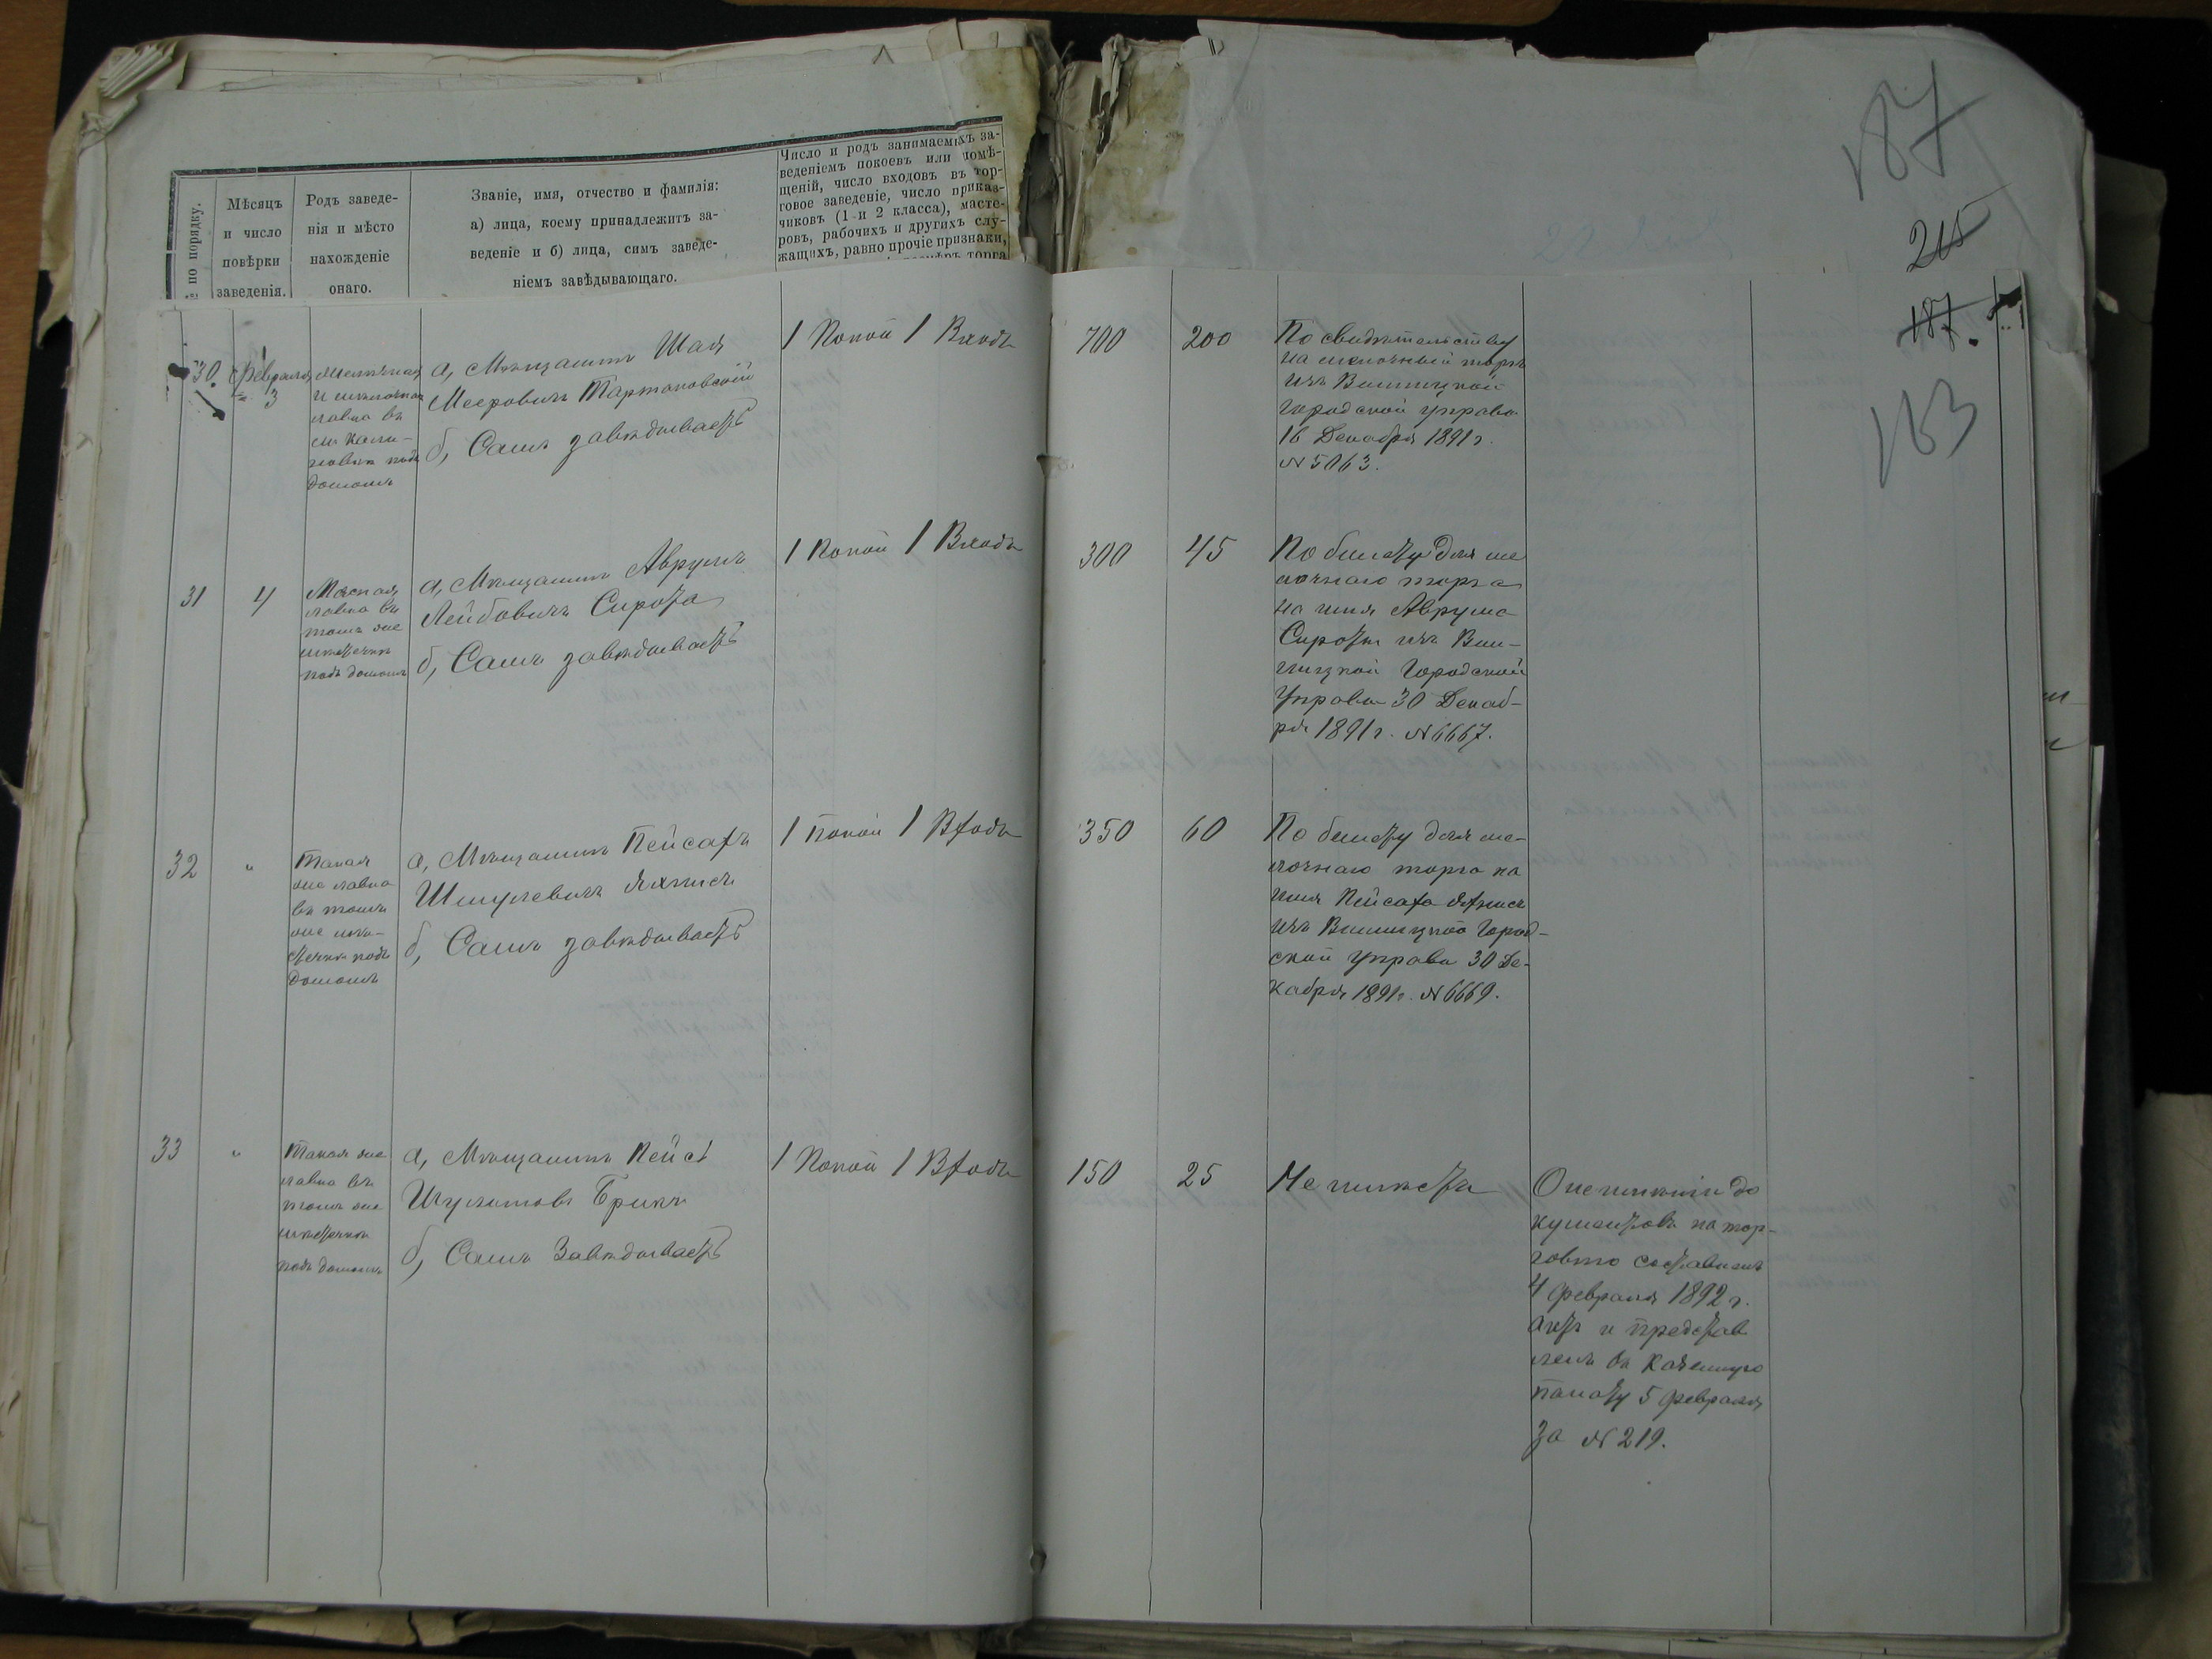 № по порядку.
Мѣсяцъ
и число
повѣрки
заведенія.
Родъ заведе-
нія и мѣсто
нахожденіе
онаго.
Званіе, имя, отчество и фамилія:
а) лица, коему принадлежитъ за-
веденіе и б) лица, симъ заведе-
ніемъ завѣдывающаго.
Число и родъ занимаемыхъ за-
веденіемъ покоевъ или помѣ-
щеній, число входовъ въ тор-
говое заведеніе, число приказ-
чиковъ (1 и 2 класса), масте-
ровъ, рабочихъ и другихъ слу-
жащихъ, равно прочіе признаки,
торга
187
215
187.
183
30.
Февраля
3
и мелочная
лавка въ
домомъ
а, Мѣщанинъ Шая
Мееровичъ Тартаковскій
б, Самъ завѣдываетъ
1 Покой 1 Входъ
700
200
По свидѣтельству
на мелочный торгъ
изъ Винницкой
Городской управы
16 Декабря 1891 г.
№ 5063.
31
4
Мясная
лавка въ
томъ же
мѣстечкѣ
подъ домомъ
а, Мѣщанинъ Аврумъ
Лейбовичъ Сирота
б, Самъ завѣдываетъ
1 Покой 1 Входъ
300
45
По билету для ме
лочнаго торга
на имя Аврума
Сироты изъ Вин-
ницкой Городской
Управы 30 Декаб-
ря 1891 г. № 6667.
32
"
Такая
же лавка
въ томъ
же мѣ-
стечкѣ подъ
домомъ
а, Мѣщанинъ Пейсахъ
Шмулевичъ
б, Самъ завѣдываетъ
1 Покой 1 Входъ
350
60
По билету для ме-
лочнаго торга на
имя Пейсаха
изъ Винницкой Город-
ской управы 30 Де-
кабря 1891 г. № 6669.
33
"
Такая же
лавка въ
томъ же
мѣстечкѣ
подъ домомъ
а, Мѣщанинъ Пейсъ
Брикъ
б, Самъ Завѣдываетъ
1 Покой 1 Входъ
150
25
Не имѣетъ
О неимѣніи до
кументовъ на тор-
говлю составленъ
4 Февраля 1892 г.
актъ и представ
ленъ въ Казенную
палату 5 Февраля
за № 219.